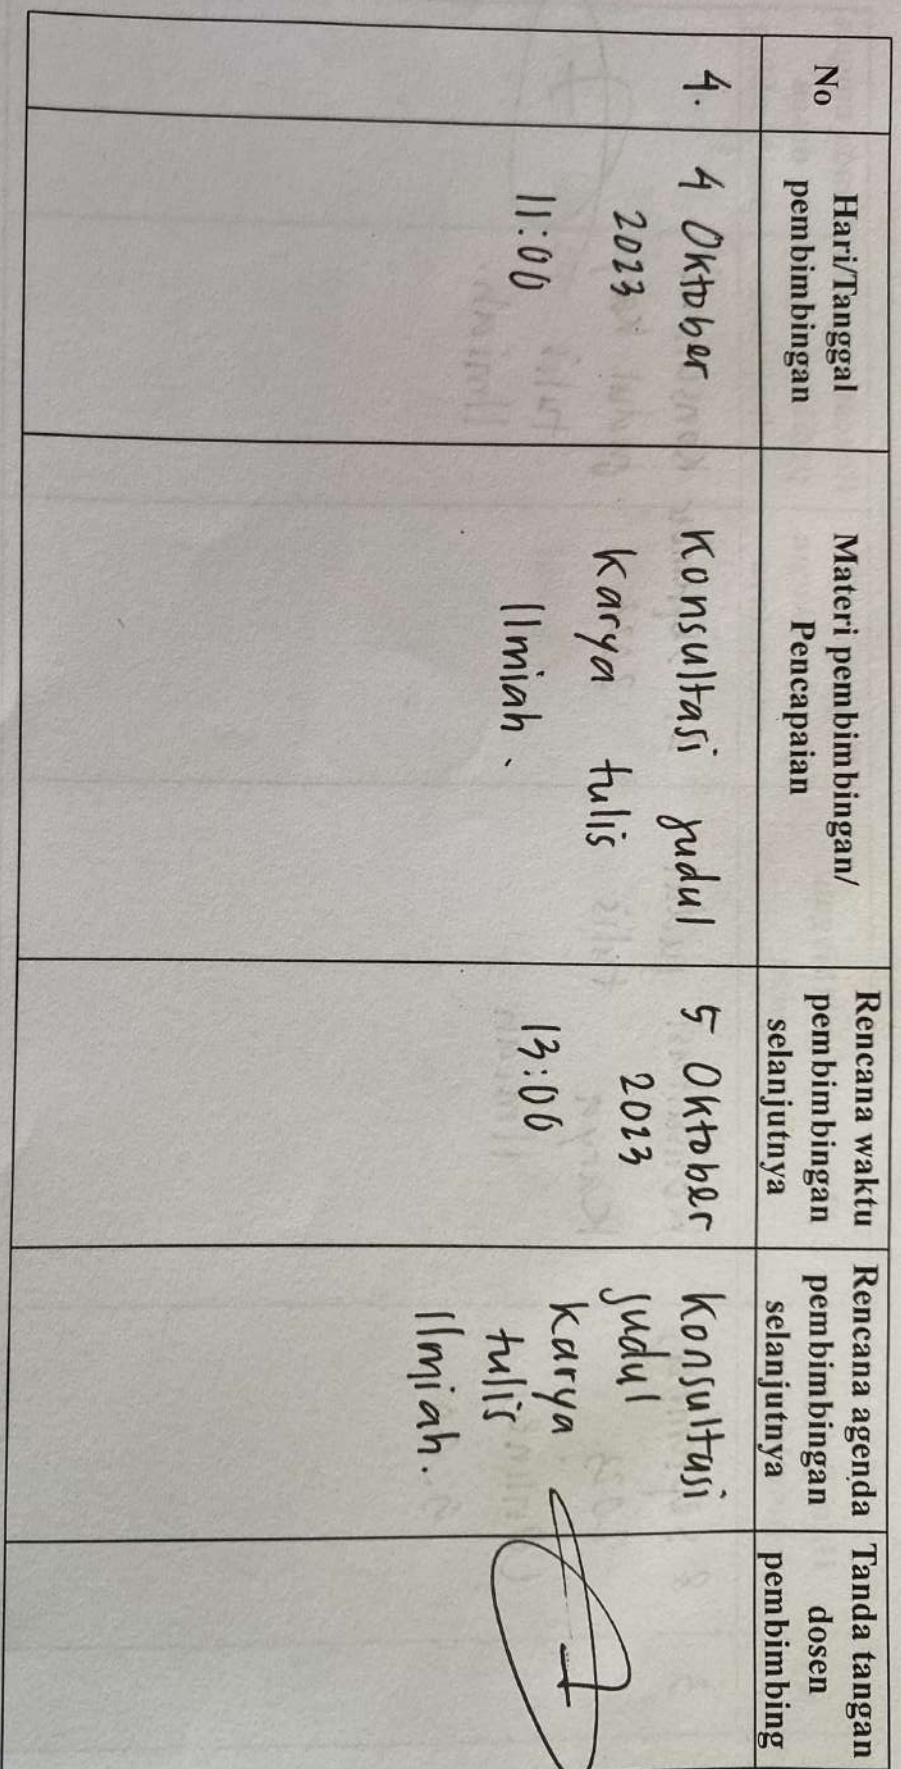 No
Hari/Tanggal
pembimbingan
Materi pembimbingan/
Pencapaian
Rencana waktu
pembimbingan
selanjutnya
Rencana agenda
pembimbingan
selanjutnya
Tanda tangan
dosen
pembimbing
4.
4 Oktober
2023
11:00
Konsultasi judul
karya tulis
Ilmiah.
5 Oktober
2023
13:00
Konsultasi
judul
karya
tulis
Ilmiah.